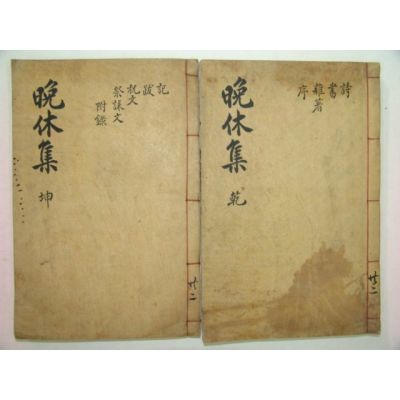 詩
書
雜著
序
晩休集 乾
共二
記
跋
祝文
祭誄文
附錄
晩休集 坤
共二